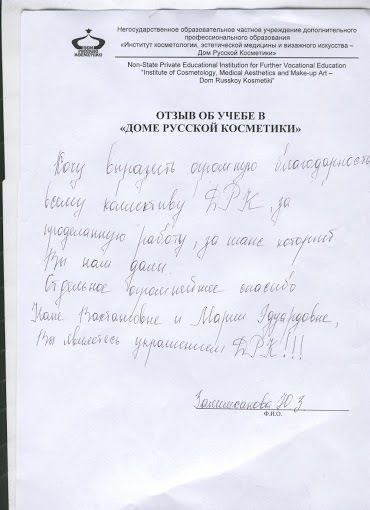 ДОМ
РУССКОЙ
КОСМЕТИКИ
Негосударственное образовательное частное учреждение дополнительного
профессионального образования
«Институт косметологии, эстетической медицины и визажного искусства –
Дом Русской Косметики»
Non-State Private Educational Institution for Further Vocational Education
"Institute of Cosmetology, Medical Aesthetics and Make-up Art –
Dom Russkoy Kosmetiki"
ОТЗЫВ ОБ УЧЕБЕ В
«ДОМЕ РУССКОЙ КОСМЕТИКИ»
Хочу выразить огромную благодарность
всему коллективу ДРК, за
проделанную работу, за шанс который
Вы нам дали.
Отдельное огромнейшее спасибо
Вахтанговне и Марии Эдуардовне,
Вы являетесь украшением ДРК!!!
Ф.И.О.